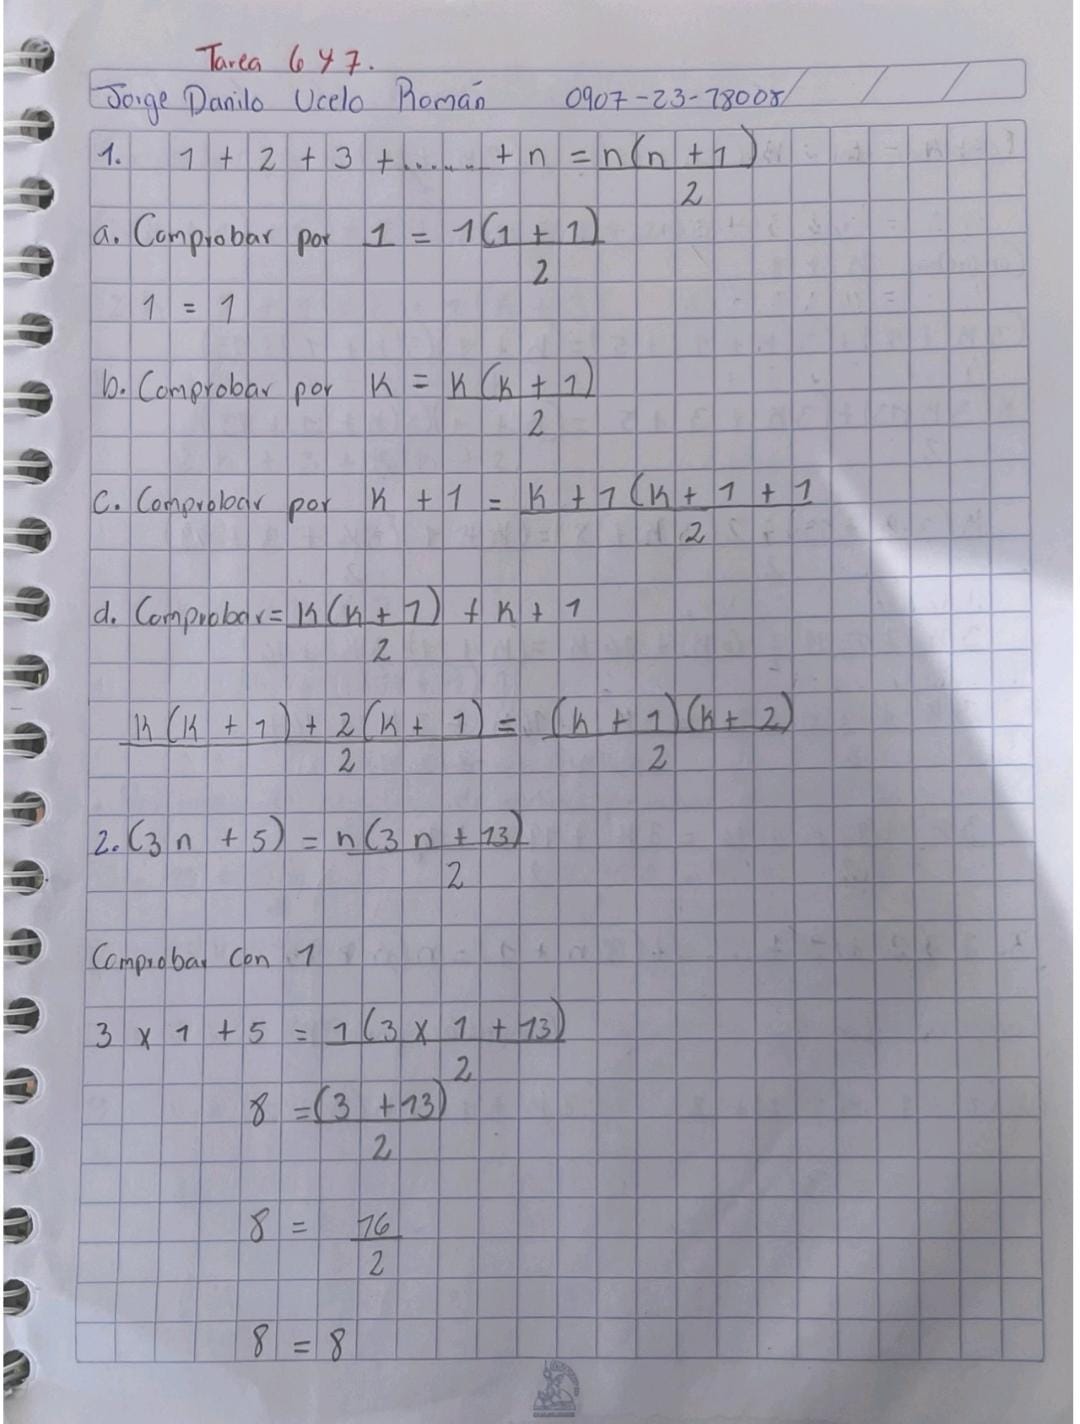 Tarea 6 y 7.
Jorge Danilo Ucelo Román 0907-23-78008/ / /
1. 1 + 2 + 3 + ...... + n = n(n + 1)
2
a. Comprobar por 1 = 1(1 + 1)
2
1 = 1
b. Comprobar por K = K(K + 1)
2
C. Comprobar por K + 1 = K + 1(K + 1 + 1
2
d. Comprobar = K(K + 1) + K + 1
2
K(K + 1) + 2(K + 1) = (K + 1)(K + 2)
2 2
2. (3n + 5) = n(3n + 13)
2
Comprobar Con 1
3 x 1 + 5 = 1(3 x 1 + 13)
2
8 = (3 + 13)
2
8 = 16
2
8 = 8